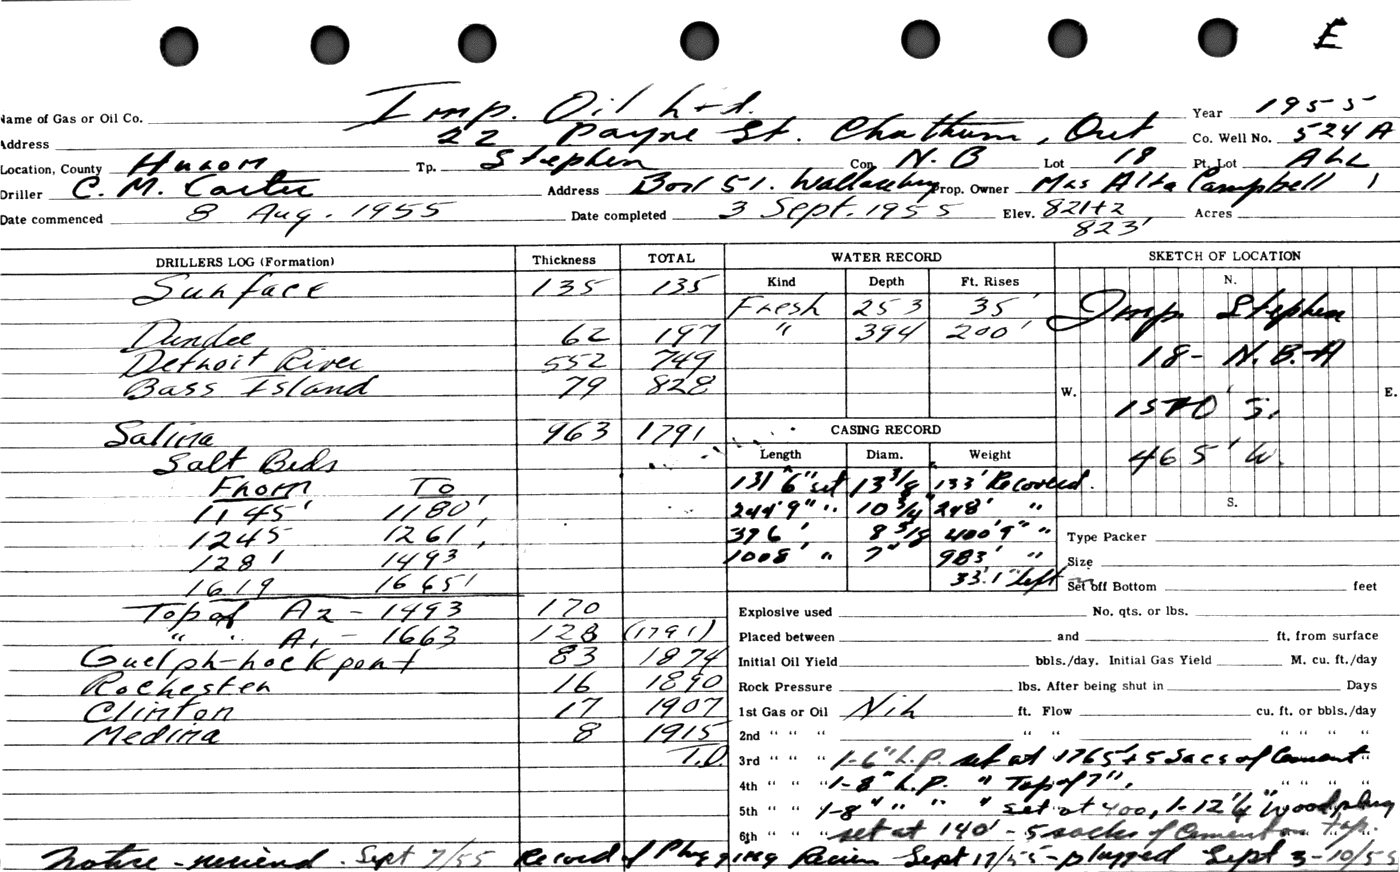 E
Name of Gas or Oil Co. Imp. Oil Ltd. Year 1955
Address 22 Payne St. Chatham, Ont Co. Well No. 524A
Location, County Huron Tp. Stephen Con. N.B Lot 18 Pt. Lot ALL
Driller C. M. Carter Address Box 51. Wallaceburg Prop. Owner Mrs Alta Campbell
Date commenced 8 Aug. 1955 Date completed 3 Sept. 1955 Elev. 821+2 Acres
823'
DRILLERS LOG (Formation) Thickness TOTAL
Surface 135 135
Dundee 62 197
Detroit River 552 749
Bass Island 79 828
Salina 963 1791
Salt Beds
From To
1145' 1180'
1245 1261'
1281 1493
1619 1665'
Top of A2 - 1493 170
" " A1 - 1663 128 (1791)
Guelph-Lockport 83 1874
Rochester 16 1890
Clinton 17 1907
Medina 8 1915
T.D.
WATER RECORD
Kind Depth Ft. Rises
Fresh 253 35'
" 394 200'
CASING RECORD
Length Diam. Weight
131'6" set 13 3/8 133' Recovered.
244'9" " 10 3/4" 248' "
396' 8 5/8 400'9" "
1008' " 7" 983' "
33'.1" left
SKETCH OF LOCATION
N.
Imp Stephen
18- N.B.-A
W. E.
1570' S.
465' W.
S.
Type Packer
Size
Set off Bottom feet
Explosive used No. qts. or lbs.
Placed between and ft. from surface
Initial Oil Yield bbls./day. Initial Gas Yield M. cu. ft./day
Rock Pressure lbs. After being shut in Days
1st Gas or Oil Nil ft. Flow cu. ft. or bbls./day
2nd " " " " " " " "
3rd " " " 1-6" L.P. set at 1765'+5 Sacs of Cement "
4th " " " 1-8" L.P. " Top of 7".
5th " " " 1-8" " " " set at 400, 1-12 1/4" Wood plug
6th " " " set at 140' - 5 sacks of Cement on top.
Notice - received. Sept 7/55 Record of Plugging Receiv Sept 17/55 - plugged Sept 3-10/55